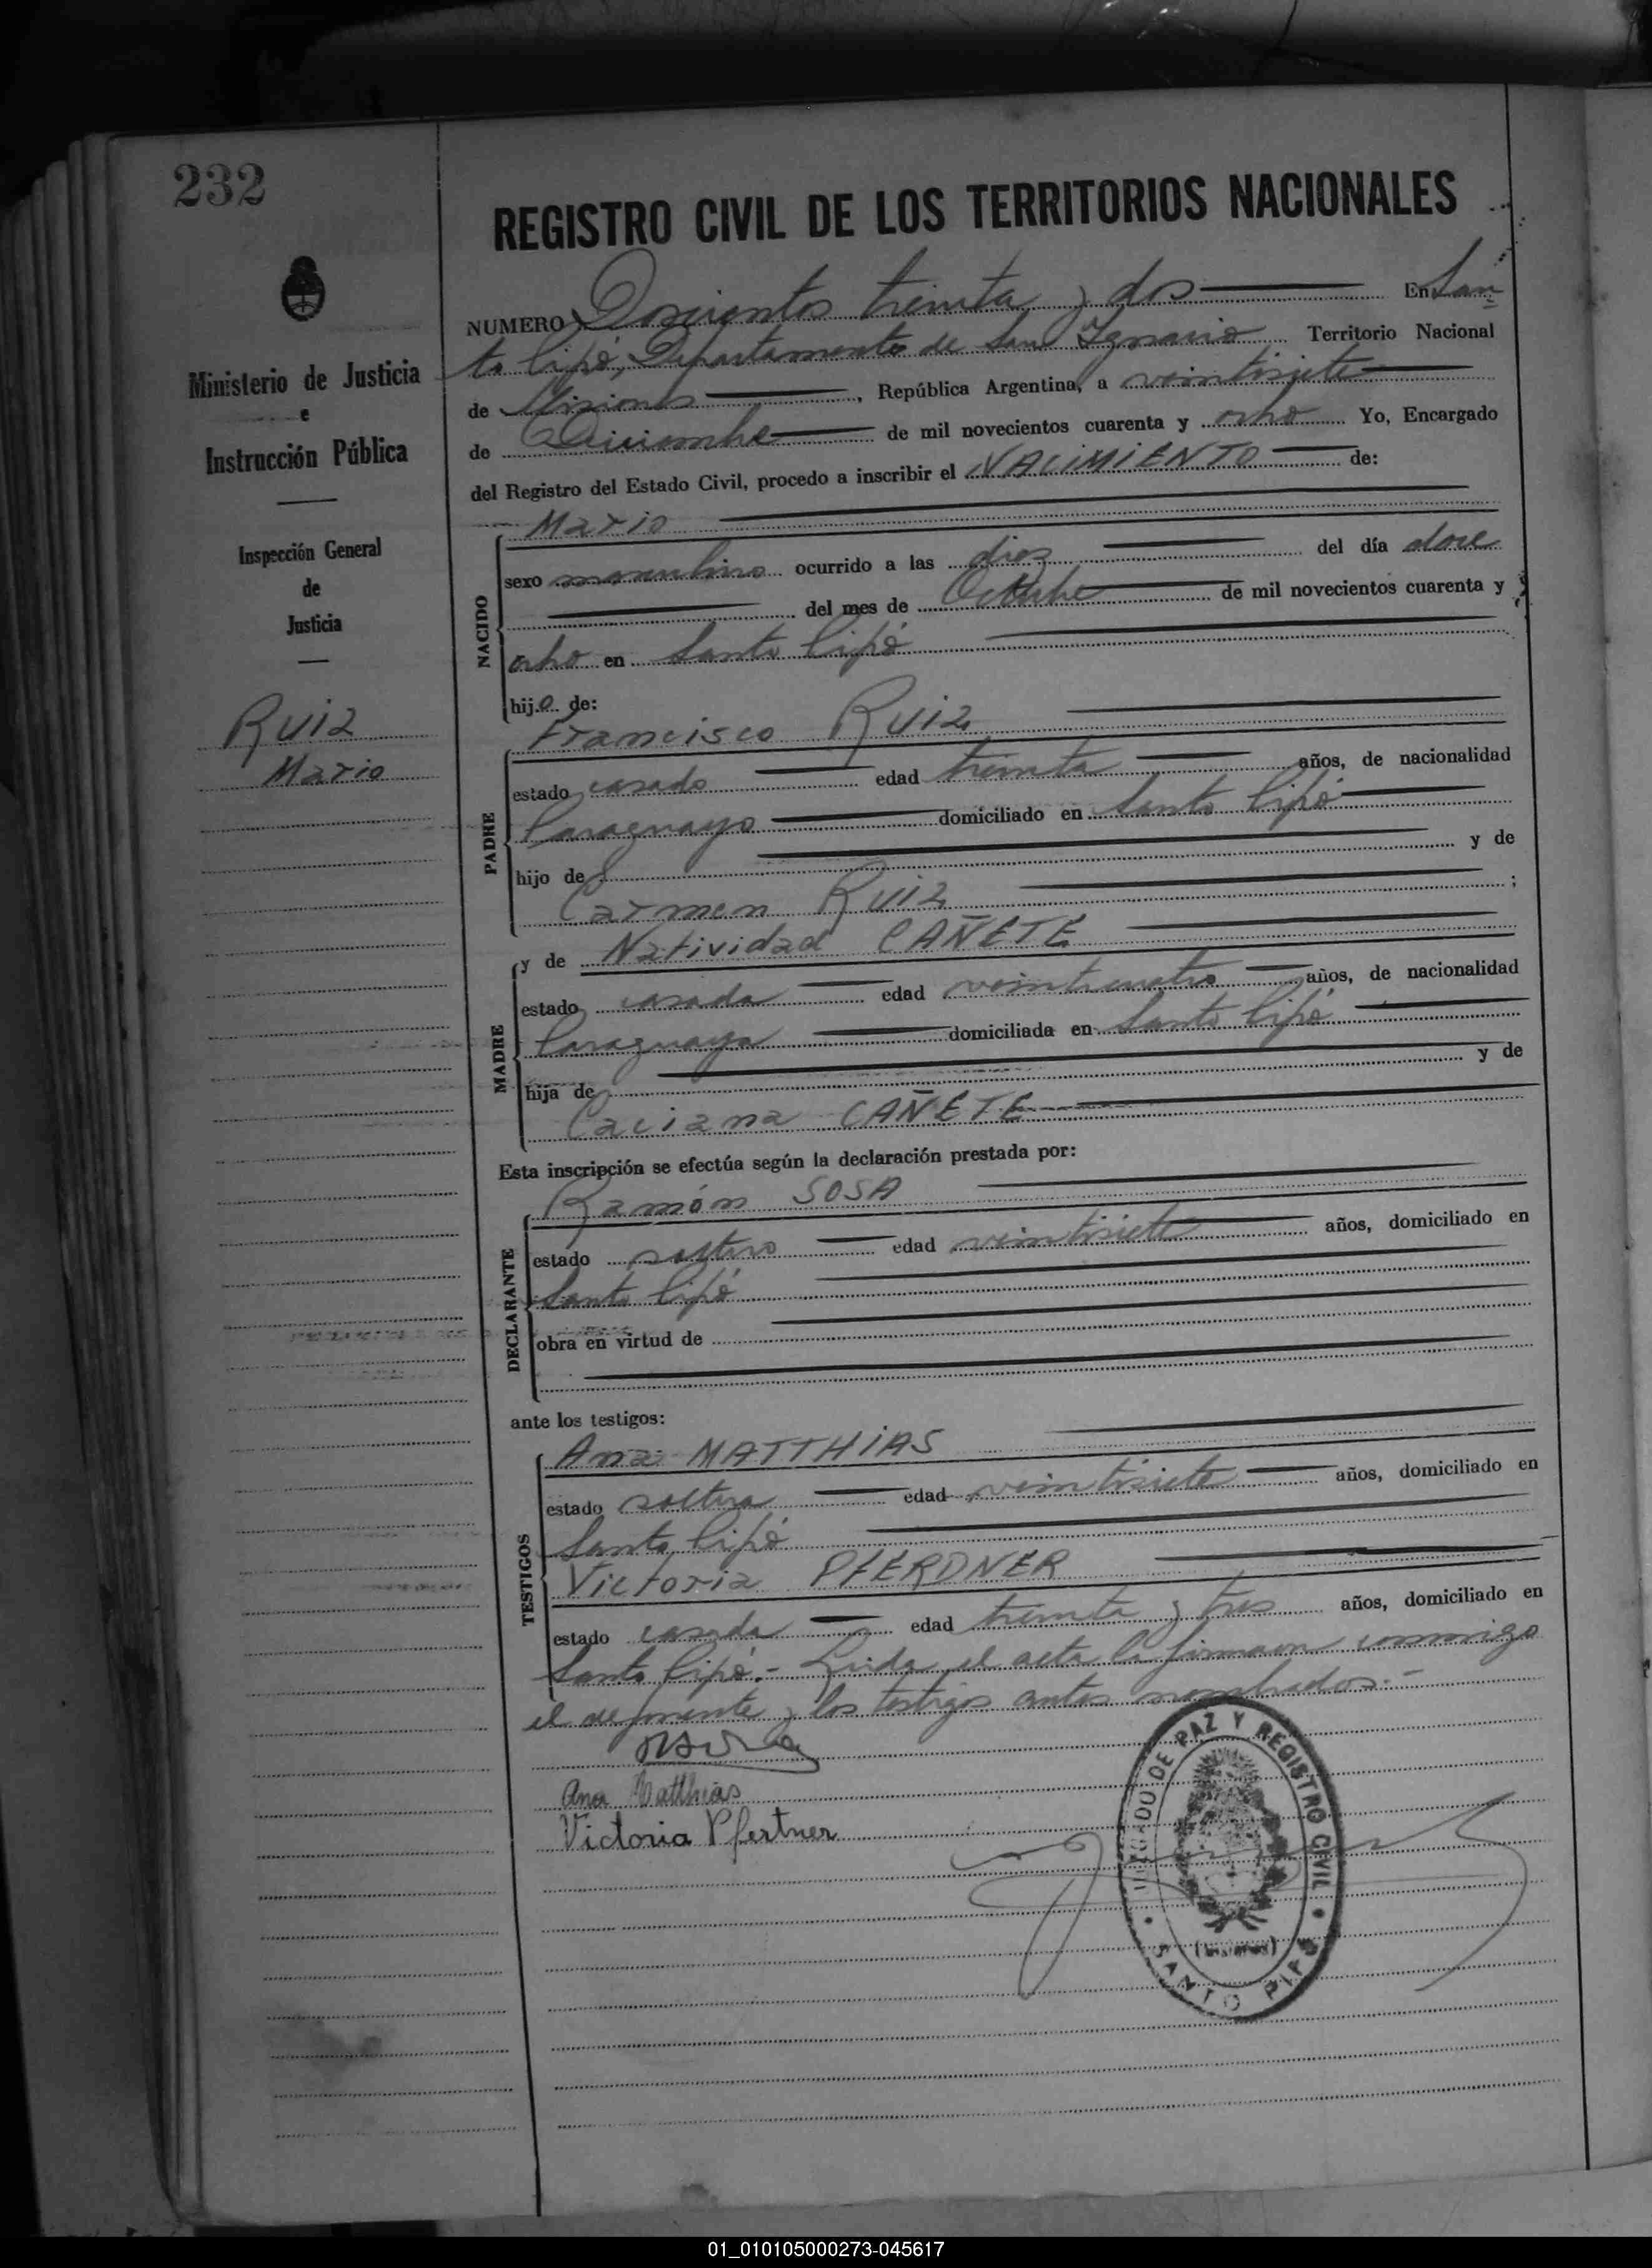 232
Ministerio de Justicia
e
Instrucción Pública
Inspección General
de
Justicia
Ruiz
Mario
REGISTRO CIVIL DE LOS TERRITORIOS NACIONALES
NUMERO Doscientos treinta y dos En San-
to Pipó, Departamento de San Ignacio Territorio Nacional
de Misiones, República Argentina, a veintisiete
de Diciembre de mil novecientos cuarenta y ocho Yo, Encargado
del Registro del Estado Civil, procedo a inscribir el NACIMIENTO de:
NACIDO
Mario
sexo masculino ocurrido a las diez del día doce
del mes de Octubre de mil novecientos cuarenta y
ocho en Santo Pipó
hijo de:
PADRE
Francisco Ruiz
estado casado edad treinta años, de nacionalidad
Paraguayo domiciliado en Santo Pipó
hijo de y de
Carmen Ruiz ;
MADRE
y de Natividad CAÑETE
estado casada edad veinticuatro años, de nacionalidad
Paraguaya domiciliada en Santo Pipó
hija de y de
Caciana CAÑETE
Esta inscripción se efectúa según la declaración prestada por:
DECLARANTE
Ramón SOSA
estado soltero edad veintisiete años, domiciliado en
Santo Pipó
obra en virtud de
ante los testigos:
TESTIGOS
Ana MATTHIAS
estado soltera edad veintisiete años, domiciliado en
Santo Pipó
Victoria PFERDNER
estado casada edad treinta y tres años, domiciliado en
Santo Pipó.- Leida el acta la firman conmigo
el deponente y los testigos antes nombrados.-
Ana Matthias
Victoria Pfertner
JUZGADO DE PAZ Y REGISTRO CIVIL
(Misiones)
SANTO PIPÓ
01_010105000273-045617